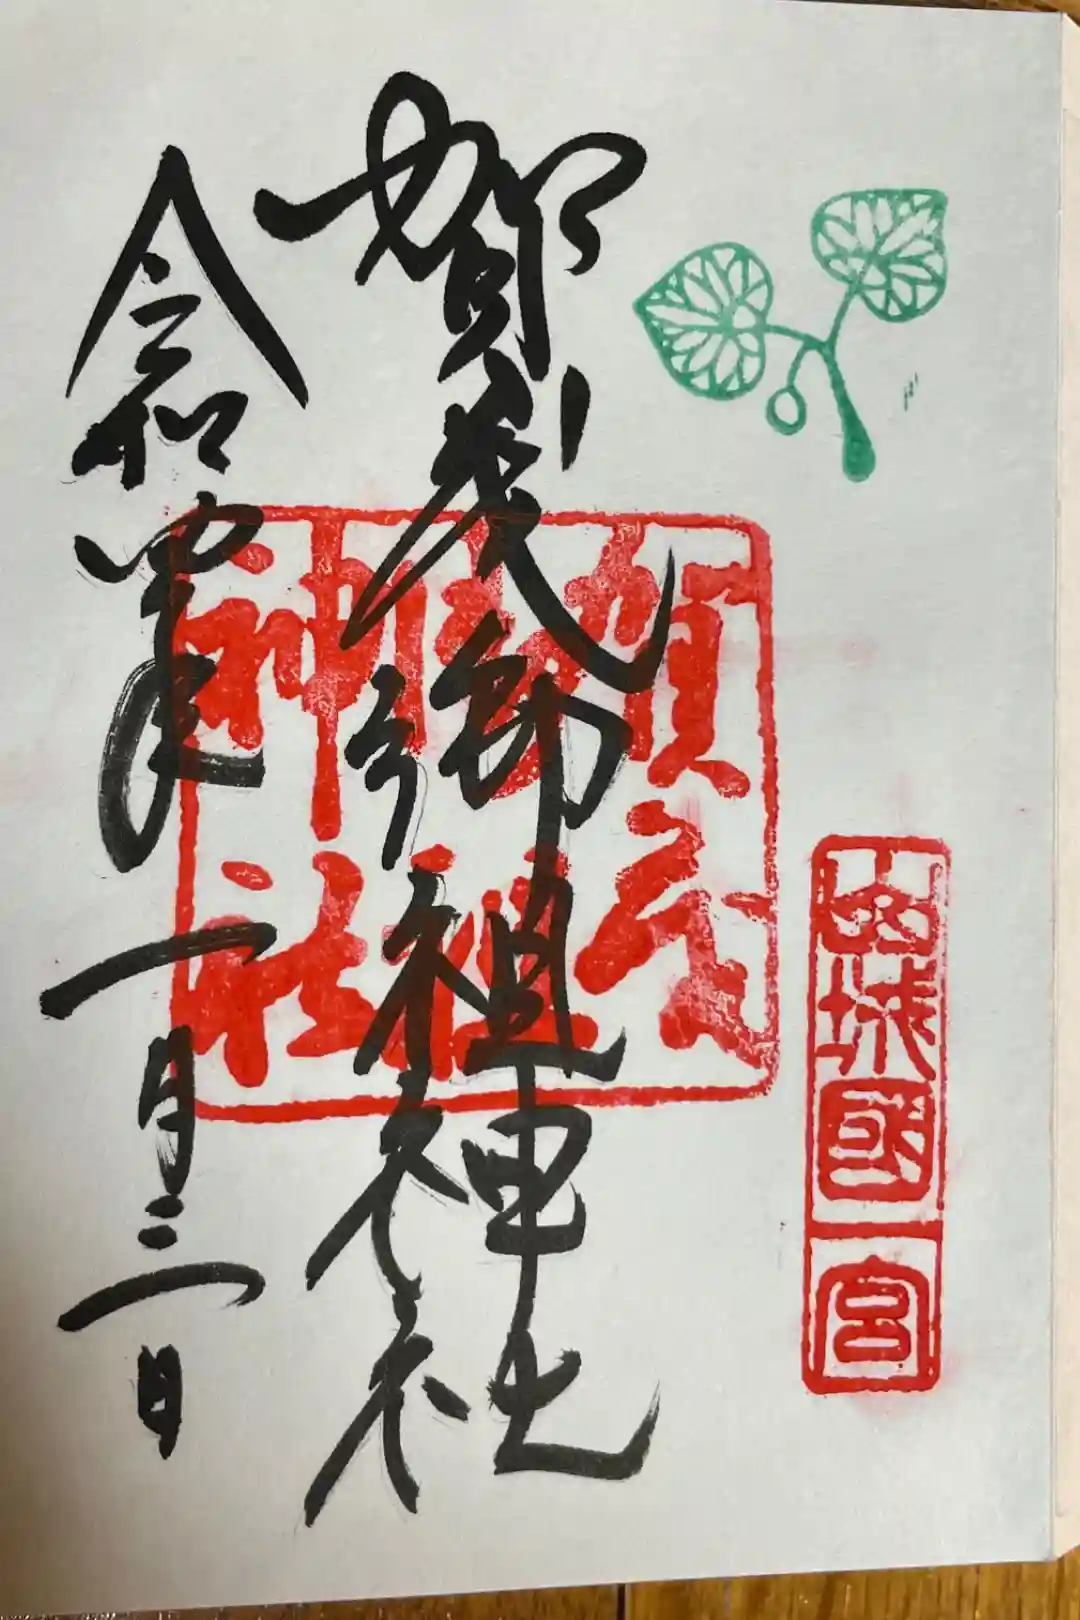 山城國一宮
賀茂御祖神社
賀茂御祖神社
令和四年一月三日